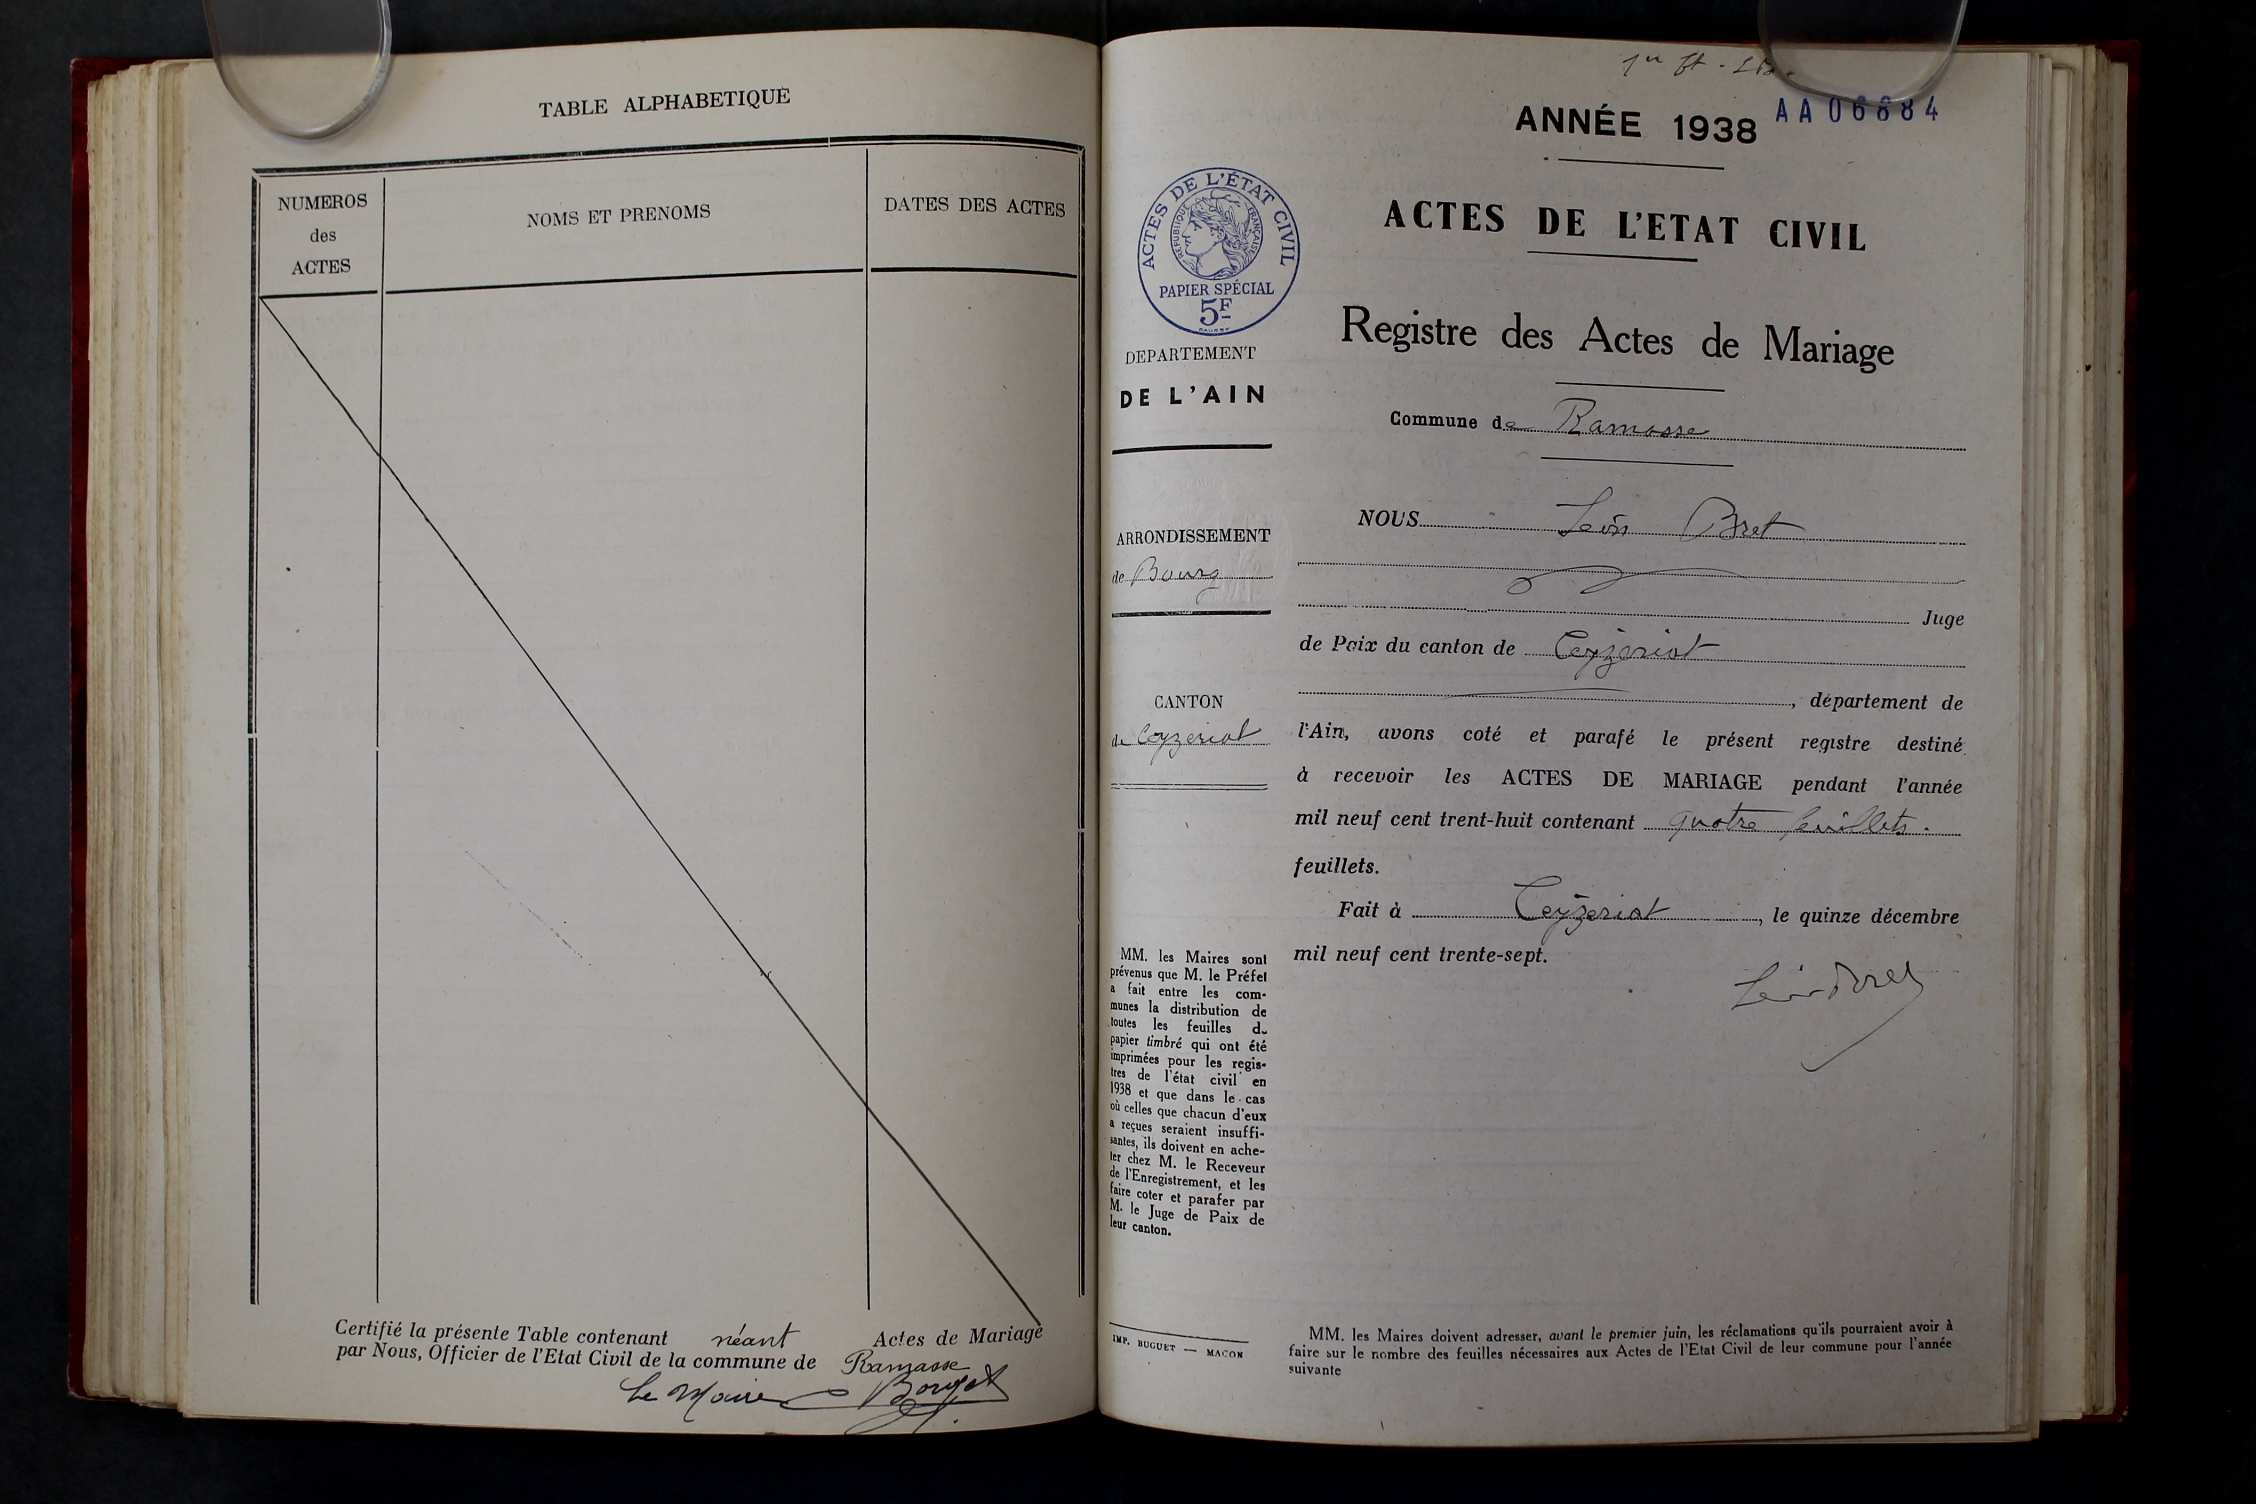 TABLE ALPHABETIQUE
NUMEROS
des
ACTES
NOMS ET PRENOMS
DATES DES ACTES
Certifié la présente Table contenant néant Actes de Mariage
par Nous, Officier de l'Etat Civil de la commune de Ramasse
Le Maire
1er ft
ANNÉE 1938
AA06884
ACTES DE L'ETAT CIVIL
ACTES DE L'ÉTAT CIVIL
RÉPUBLIQUE FRANÇAISE
PAPIER SPÉCIAL
5F
Registre des Actes de Mariage
DEPARTEMENT
DE L'AIN
ARRONDISSEMENT
de Bourg
CANTON
de Ceyzeriat
MM. les Maires sont
prévenus que M. le Préfet
a fait entre les com-
munes la distribution de
toutes les feuilles de
papier timbré qui ont été
imprimées pour les regis-
tres de l'état civil en
1938 et que dans le cas
où celles que chacun d'eux
a reçues seraient insuffi-
santes, ils doivent en ache-
ter chez M. le Receveur
de l'Enregistrement, et les
faire coter et parafer par
M. le Juge de Paix de
leur canton.
IMP. BUGUET — MACON
Commune de Ramasse
NOUS Léon Bret
Juge
de Paix du canton de Ceyzeriat
, département de
l'Ain, avons coté et parafé le présent registre destiné
à recevoir les ACTES DE MARIAGE pendant l'année
mil neuf cent trent-huit contenant quatre feuillets.
feuillets.
Fait à Ceyzeriat, le quinze décembre
mil neuf cent trente-sept.
Léon Bret
MM. les Maires doivent adresser, avant le premier juin, les réclamations qu'ils pourraient avoir à
faire sur le nombre des feuilles nécessaires aux Actes de l'Etat Civil de leur commune pour l'année
suivante